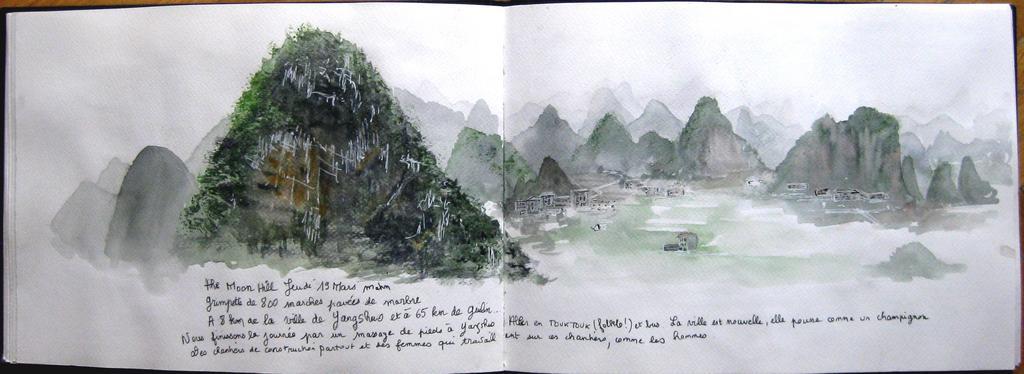 the Moon Hill Jeudi 19 Mars matin
Grimpette de 800 marches pavées de marbre
A 8 km de la ville de Yangshuo et à 65 km de Guilin...
Nous finissons la journée par un massage de pieds à Yangshuo
Des chantiers de construction partout et des femmes qui travaillent sur ces chantiers, comme les hommes
Aller en TOUKTOUK (folklo!) et bus La ville est nouvelle, elle pousse comme un champignon